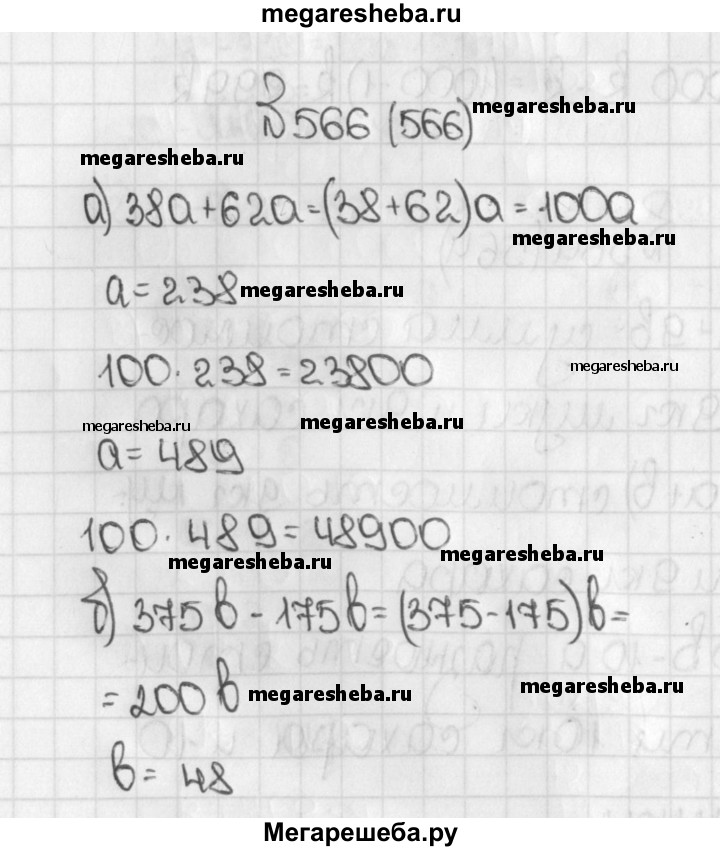 megaresheba.ru
№ 566 (566) megaresheba.ru
megaresheba.ru
а) 38a+62a=(38+62)a=100a
megaresheba.ru
a=238 megaresheba.ru
100·238=23800 megaresheba.ru
megaresheba.ru megaresheba.ru
a=489
100·489=48900
megaresheba.ru megaresheba.ru
б) 375b-175b=(375-175)b=
=200b megaresheba.ru megaresheba.ru
b=48
Мегарешеба.ру